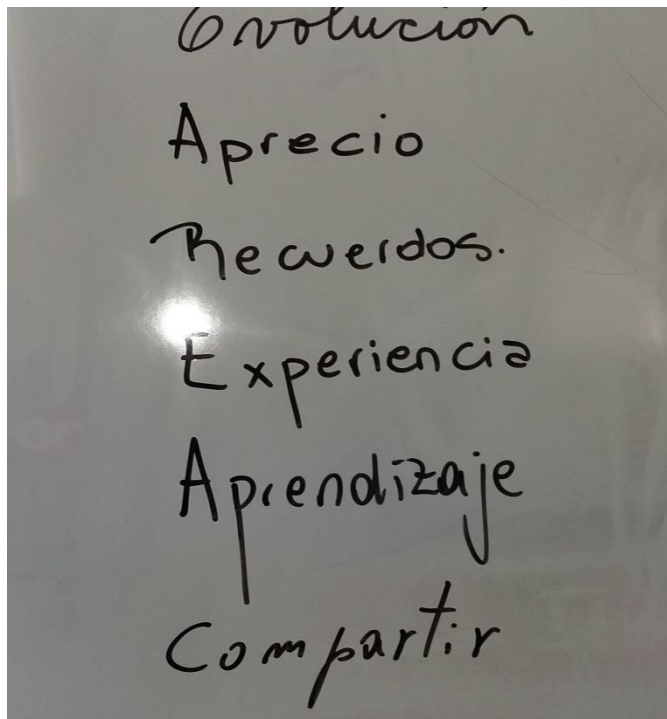 Evolución
Aprecio
Recuerdos.
Experiencia
Aprendizaje
Compartir